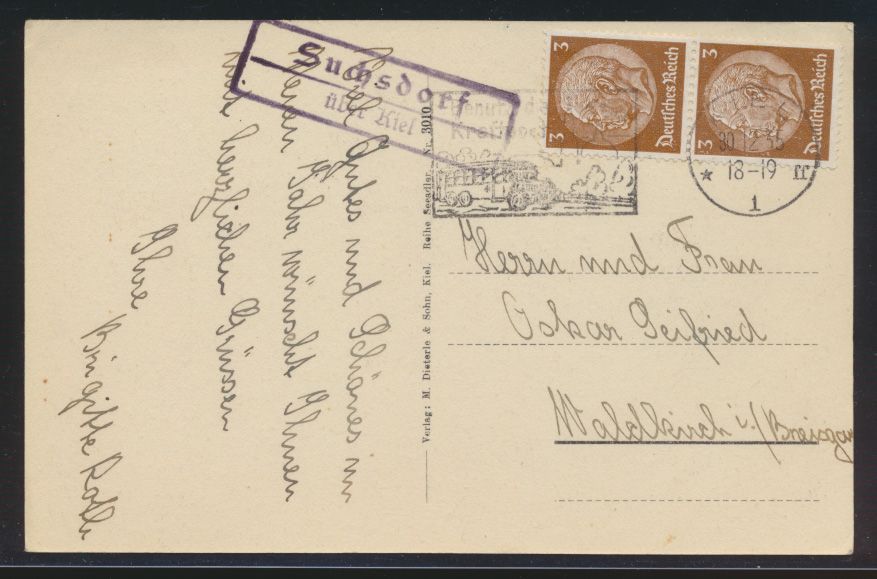 Suchsdorf
über Kiel
Benutzt d
Kraftpos
3 Deutsches Reich 3
3 Deutsches Reich 3
30.12.35
18-19
* ff
1
Viel Gutes und Schönes im
neuen Jahr wünscht Ihnen
mit herzlichen Grüssen
Ihre Brigitte
Verlag: M. Dieterle & Sohn, Kiel. Reihe Seeadler Nr. 3010
Herrn und Frau
Oskar Seifried
Waldkirch i./Breisgau